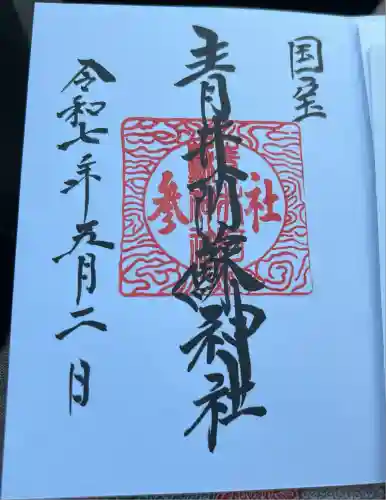 国宝
青井阿蘇神社
参社
令和七年五月二日